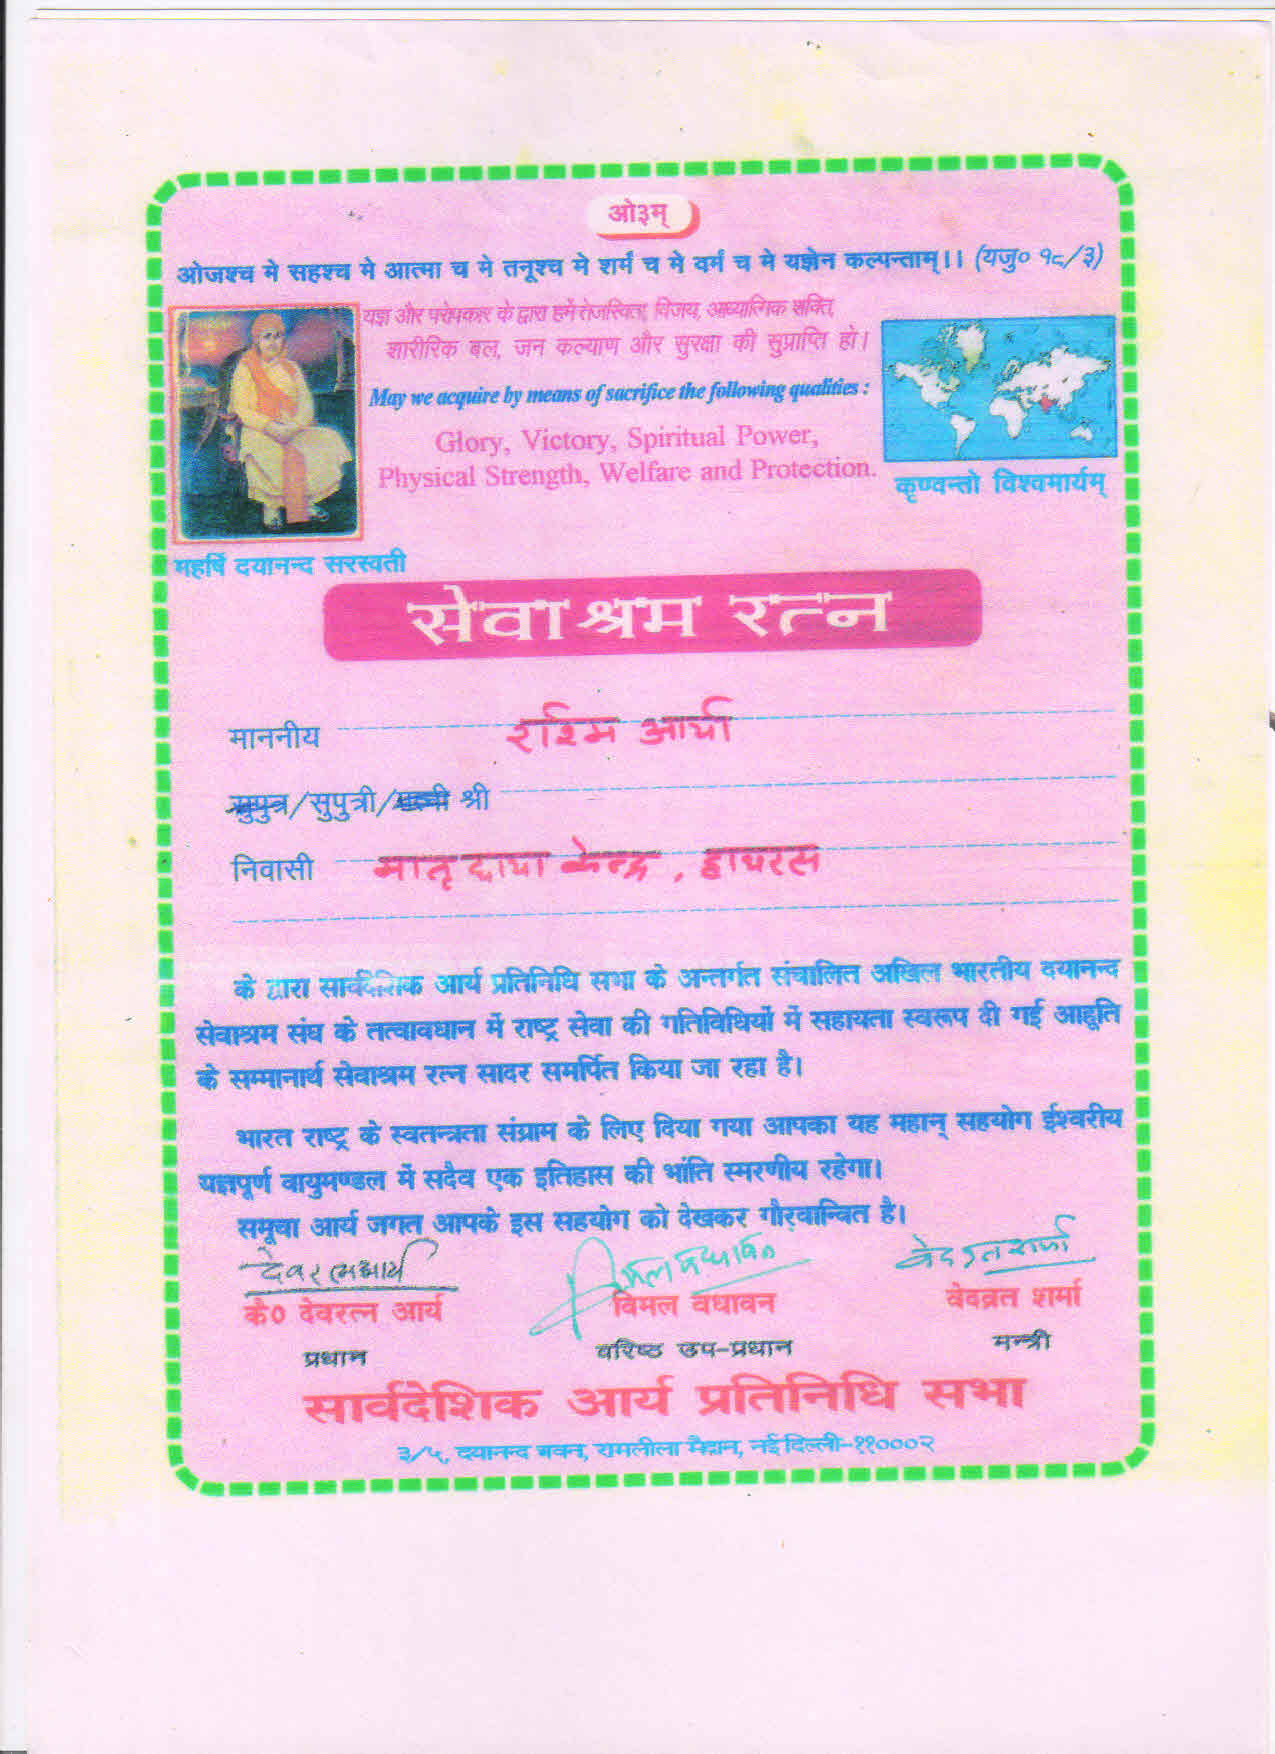 ओ३म्
ओजश्च मे सहश्च मे आत्मा च मे तनूश्च मे शर्म च मे वर्म च मे यज्ञेन कल्पन्ताम्।। (यजु० १८/३)
यज्ञ और परोपकार के द्वारा हमें तेजस्विता, विजय, आध्यात्मिक शक्ति,
शारीरिक बल, जन कल्याण और सुरक्षा की सुप्राप्ति हो।
May we acquire by means of sacrifice the following qualities :
Glory, Victory, Spiritual Power,
Physical Strength, Welfare and Protection.
कृण्वन्तो विश्वमार्यम्
महर्षि दयानन्द सरस्वती
सेवाश्रम रत्न
माननीय रश्मि आर्या
सुपुत्र/सुपुत्री/पत्नी श्री
निवासी मातृ छाया केन्द्र, हाथरस
के द्वारा सार्वदेशिक आर्य प्रतिनिधि सभा के अन्तर्गत संचालित अखिल भारतीय दयानन्द
सेवाश्रम संघ के तत्वावधान में राष्ट्र सेवा की गतिविधियों में सहायता स्वरूप दी गई आहूति
के सम्मानार्थ सेवाश्रम रत्न सादर समर्पित किया जा रहा है।
भारत राष्ट्र के स्वतन्त्रता संग्राम के लिए दिया गया आपका यह महान् सहयोग ईश्वरीय
यज्ञपूर्ण वायुमण्डल में सदैव एक इतिहास की भांति स्मरणीय रहेगा।
समूचा आर्य जगत आपके इस सहयोग को देखकर गौरवान्वित है।
देवरत्न आर्य विमल वधावन वेदव्रत शर्मा
कै० देवरत्न आर्य विमल वधावन वेदव्रत शर्मा
प्रधान वरिष्ठ उप-प्रधान मन्त्री
सार्वदेशिक आर्य प्रतिनिधि सभा
३/५, दयानन्द भवन, रामलीला मैदान, नई दिल्ली-११०००२